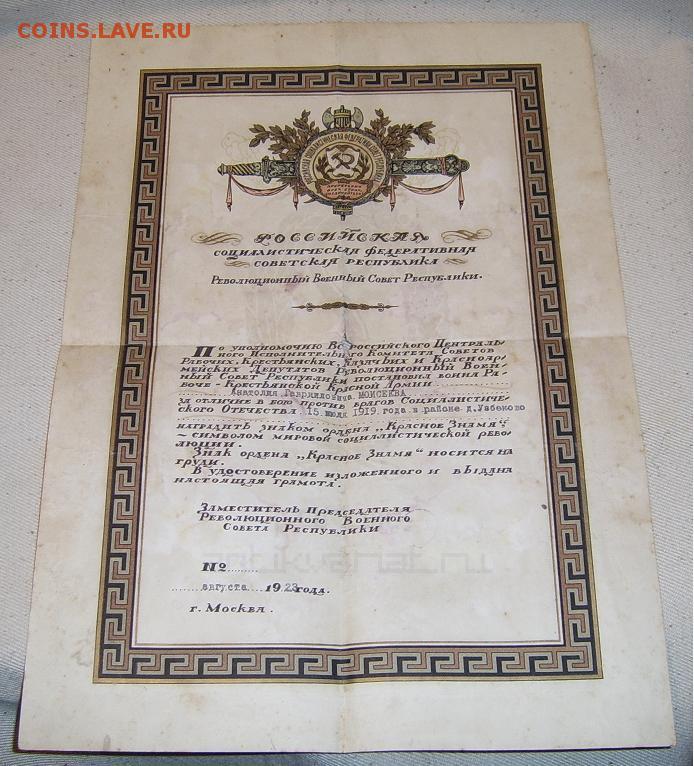 COINS.LAVE.RU
РОССИЙСКАЯ
СОЦИАЛИСТИЧЕСКАЯ ФЕДЕРАТИВНАЯ
СОВЕТСКАЯ РЕСПУБЛИКА
РЕВОЛЮЦИОННЫЙ ВОЕННЫЙ СОВЕТ РЕСПУБЛИКИ.
По уполномочию Всероссийского Централь-
ного Исполнительного Комитета Советов
Рабочих, Крестьянских, Казачьих и Красноар-
мейских Депутатов Революционный Воен-
ный Совет Республики постановил воина Ра-
боче-Крестьянской Красной Армии
Анатолия Гавриловича МОИСЕЕВА
за отличие в бою против врагов Социалистиче-
ского Отечества 15 июля 1919 года в районе д.Узбеково
наградить знаком ордена „Красное Знамя"
– символом мировой социалистической рево-
люции.
Знак ордена „Красное Знамя" носится на
груди.
В удостоверение изложенного и выдана
настоящая грамота.
Заместитель Председателя
Революционного Военного
Совета Республики
№
августа 1923 года.
г. Москва.